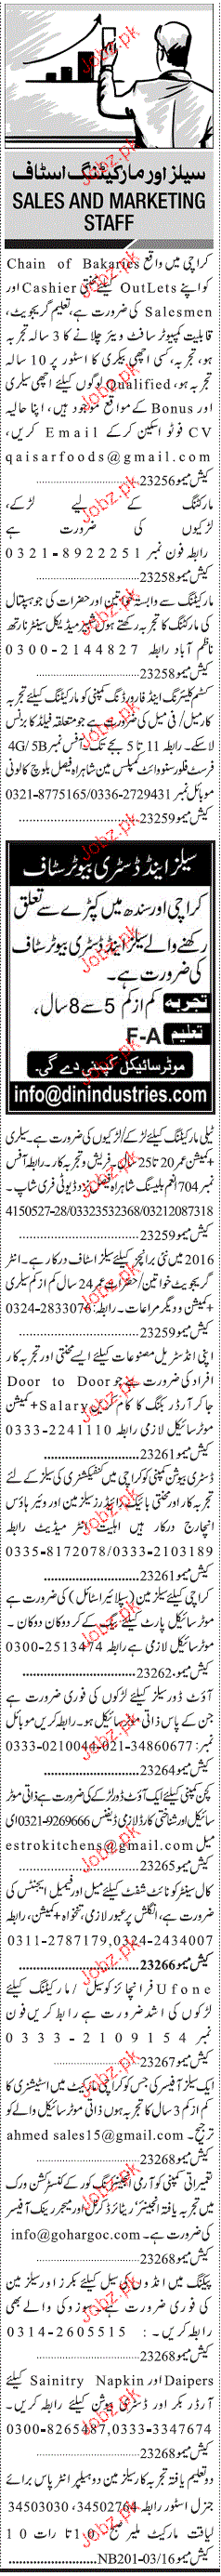 سیلز اور مارکیٹنگ اسٹاف
SALES AND MARKETING
STAFF
کراچی میں واقع Chain of Bakaries
کو اپنے OutLets کیلئے محنتی Cashier اور
Salesmen کی ضرورت ہے، تعلیم گریجویٹ،
قابلیت کمپیوٹر سافٹ ویئر چلانے کا 3 سالہ تجربہ
ہو، تجربہ، کسی اچھی بیکری کا اسٹور پر 10 سالہ
تجربہ ہو، Qualified لوگوں کیلئے اچھی سیلری
اور Bonus کے مواقع موجود ہیں، اپنا حالیہ
CV فوٹو اسکین کرکے Email کریں،
qaisarfoods@gmail.com
کیش میمو23256
مارکٹنگ کے لیے لڑکے،
لڑکیوں کی ضرورت ہے
رابطہ فون نمبر 0321-8922251
کیش میمو23258
مارکیٹنگ سے وابستہ خواتین اور حضرات کی جو ہسپتال
کی مارکٹنگ کا تجربہ رکھتے ہوں میڈیکل سینٹر نارتھ
ناظم آباد رابطہ 0300-2144827
کیش میمو23258
کسٹم کلیئرنگ اینڈ فارورڈنگ کمپنی کو مارکیٹنگ کیلئے تجربہ
کار میل/ فی میل کی ضرورت ہے جو متعلقہ فیلڈ کا بزنس
لاسکے۔ رابطہ 11 تا 5 بجے تک آفس نمبر 4G/5B
فرسٹ فلور سنوائٹ کمپلکس مین شاہراہ فیصل بلوچ کالونی
موبائل نمبر 0321-8775165/0336-2729431
کیش میمو23259
سیلز اینڈ ڈسٹری بیوٹر سٹاف
کراچی اور سندھ میں کپڑے سے تعلق
رکھنے والے سیلز اینڈ ڈسٹری بیوٹر سٹاف
کی ضرورت ہے۔
تجربہ کم از کم 5 سے 8 سال،
تعلیم F-A
موٹر سائیکل کمپنی دے گی۔
info@dinindustries.com
ٹیلی مارکیٹنگ کیلئے لڑکے/ لڑکیوں کی ضرورت ہے۔ سیلری
+کمیشن عمر 20 تا 25 سال۔ فریش و تجربہ کار۔ رابطہ آفس
نمبر 704 انعم بلیسنگ شاہراہ فیصل نزد ڈیوٹی فری شاپ۔
4150527-28/03323532368/03212087318
کیش میمو23259
2016 میں نئی برانچز کیلئے سیلز اسٹاف درکار ہے۔ انٹر
گریجویٹ خواتین/ حضرات عمر 24 سال کم از کم سیلری
+کمیشن و دیگر مراعات۔ رابطہ: 0324-2833076
کیش میمو23259
اپنی انڈسٹریل مصنوعات کیلئے ایسے محنتی اور تجربہ کار
افراد کی ضرورت ہے جو Door to Door
جاکر آرڈر بکنگ کا کام کریں Salary+ کمیشن
موٹر سائیکل لازمی رابطہ 0333-2241110
کیش میمو23261
ڈسٹری بیوشن کمپنی کو کراچی میں کنفیکشنری کی سیلز کے لئے
تجربہ کار اور محنتی بائیک رائیڈرز سیلز مین اور ویئر ہاؤس
انچارج درکار ہیں اہلیت انٹر میڈیٹ رابطہ
0335-8172078/0333-2103189
کیش میمو23261
کراچی کیلئے سیلز مین (سپلائیر اسٹائل) کی ضرورت ہے
موٹر سائیکل پارٹ کیلئے کر دوکان دوکان۔
موٹر سائیکل لازمی ہے رابطہ 0300-2513474
کیش میمو23262
آؤٹ ڈور سیلز کیلئے لڑکوں کی فوری ضرورت ہے
جن کے پاس ذاتی موٹر سائیکل ہو۔ رابطہ کریں موبائل
نمبر: 0333-0210044-021-34860677
کیش میمو23264
کچن کمپنی کیلئے ایک آؤٹ ڈور لڑکے کی ضرورت ہے ذاتی موٹر
سائیکل اور شناختی کارڈ لازمی ڈیفنس 0321-9269666 ای
میل estrokitchens@gmail.com
کیش میمو23265
کال سینٹر کو نائٹ شفٹ کیلئے میل اور فیمیل ایجنٹس کی
ضرورت ہے، انگلش پر عبور لازمی، تنخواہ +کمیشن، رابطہ
0311-2787179,0324-2434007
کیش میمو23266
Ufone فرانچائز کو سیل / مارکیٹنگ کیلئے
لڑکوں کی اشد ضرورت ہے رابطہ کریں فون
نمبر 0333-2109154
کیش میمو23267
ایک سیلز آفیسر کی جس کو کراچی مارکیٹ میں اسٹیشنری کا
کم از کم 3 سال کا تجربہ ہوں ذاتی موٹر سائیکل والے کو
ترجیح۔ ahmed sales15@gmail.com
کیش میمو23268
تعمیراتی کمپنی کو آرمی انجینئرنگ کور کے کنسٹرکشن ورک
میں تجربہ یافتہ انجینئر، ریٹائرڈ کرنل اور میجر رینک آفیسر
کی ضرورت ہے۔ info@gohargoc.com
کیش میمو23268
پیکنگ میں انڈوں کی سیل کیلئے بکرز اور سیلز مین
کی فوری ضرورت ہے سوزوکی والے بھی
رابطہ کریں۔: 0314-2605515
کیش میمو23268
Daipers اور Sainitry Napkin کیلئے
آرڈر بکر اور ڈسٹری بیوشن کیلئے رابطہ کریں۔
0300-8265487,0333-3347674
کیش میمو23268
دو تعلیم یافتہ تجربہ کار سیلز مین دو ہیلپر انٹر پاس برائے
جنرل اسٹور رابطہ 34502764، 34503030
لیاقت مارکیٹ ملیر صبح 10 تا رات 10
کیش میمو NB201-03/16
Jobz.pk